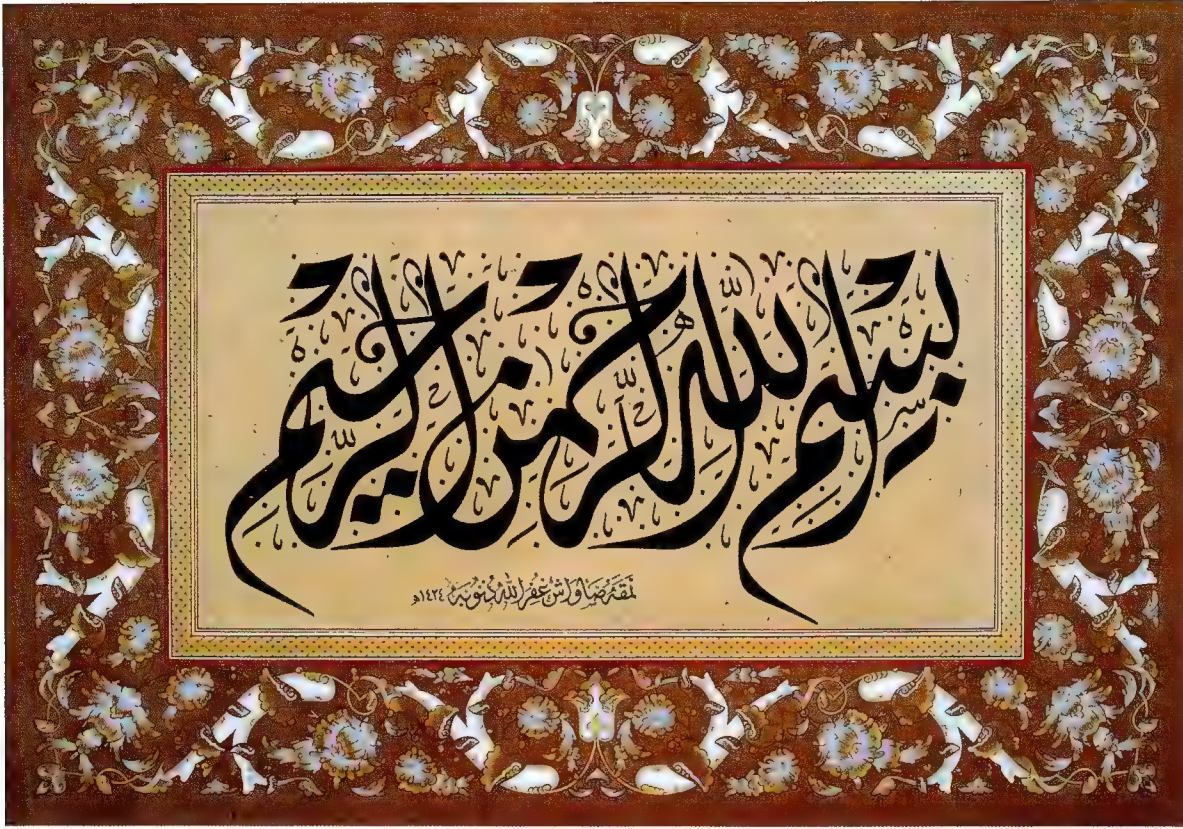 بِسْمِ اللّٰهِ الرَّحْمٰنِ الرَّحِيمِ
نمقه غفر الله ذنوبه ١٤٢٤هـ